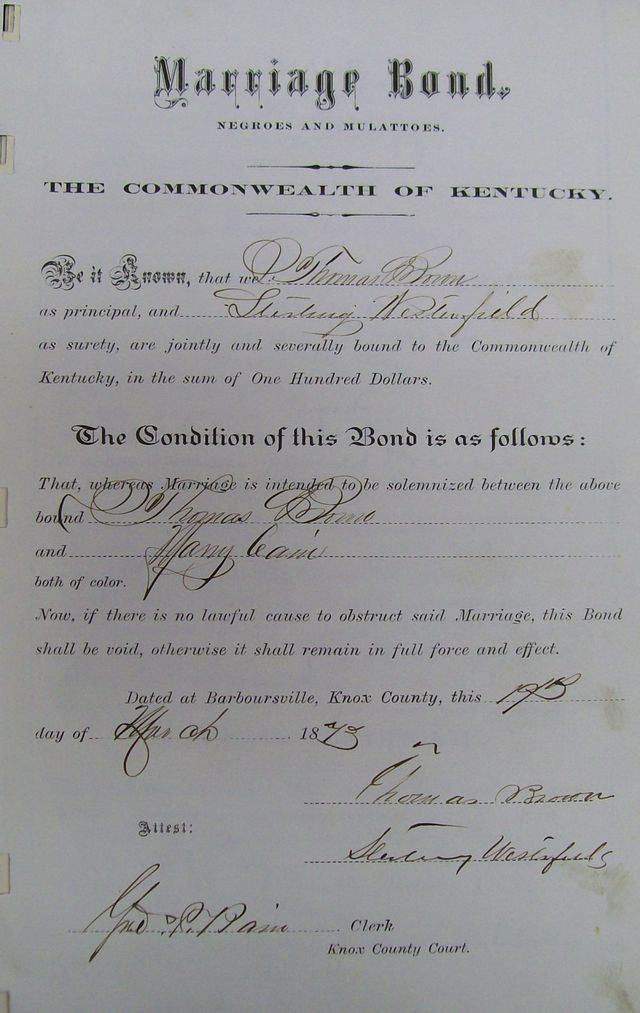 Marriage Bond.
NEGROES AND MULATTOES.
THE COMMONWEALTH OF KENTUCKY.
Be it Known, that we Thomas Brown
as principal, and Sterling Westerfield
as surety, are jointly and severally bound to the Commonwealth of
Kentucky, in the sum of One Hundred Dollars.
The Condition of this Bond is as follows:
That, whereas Marriage is intended to be solemnized between the above
bound Thomas Brown
and Cain
both of color.
Now, if there is no lawful cause to obstruct said Marriage, this Bond
shall be void, otherwise it shall remain in full force and effect.
Dated at Barboursville, Knox County, this
day of March 1873
Thomas Brown
Attest:
Sterling Westerfield
Clerk
Knox County Court.